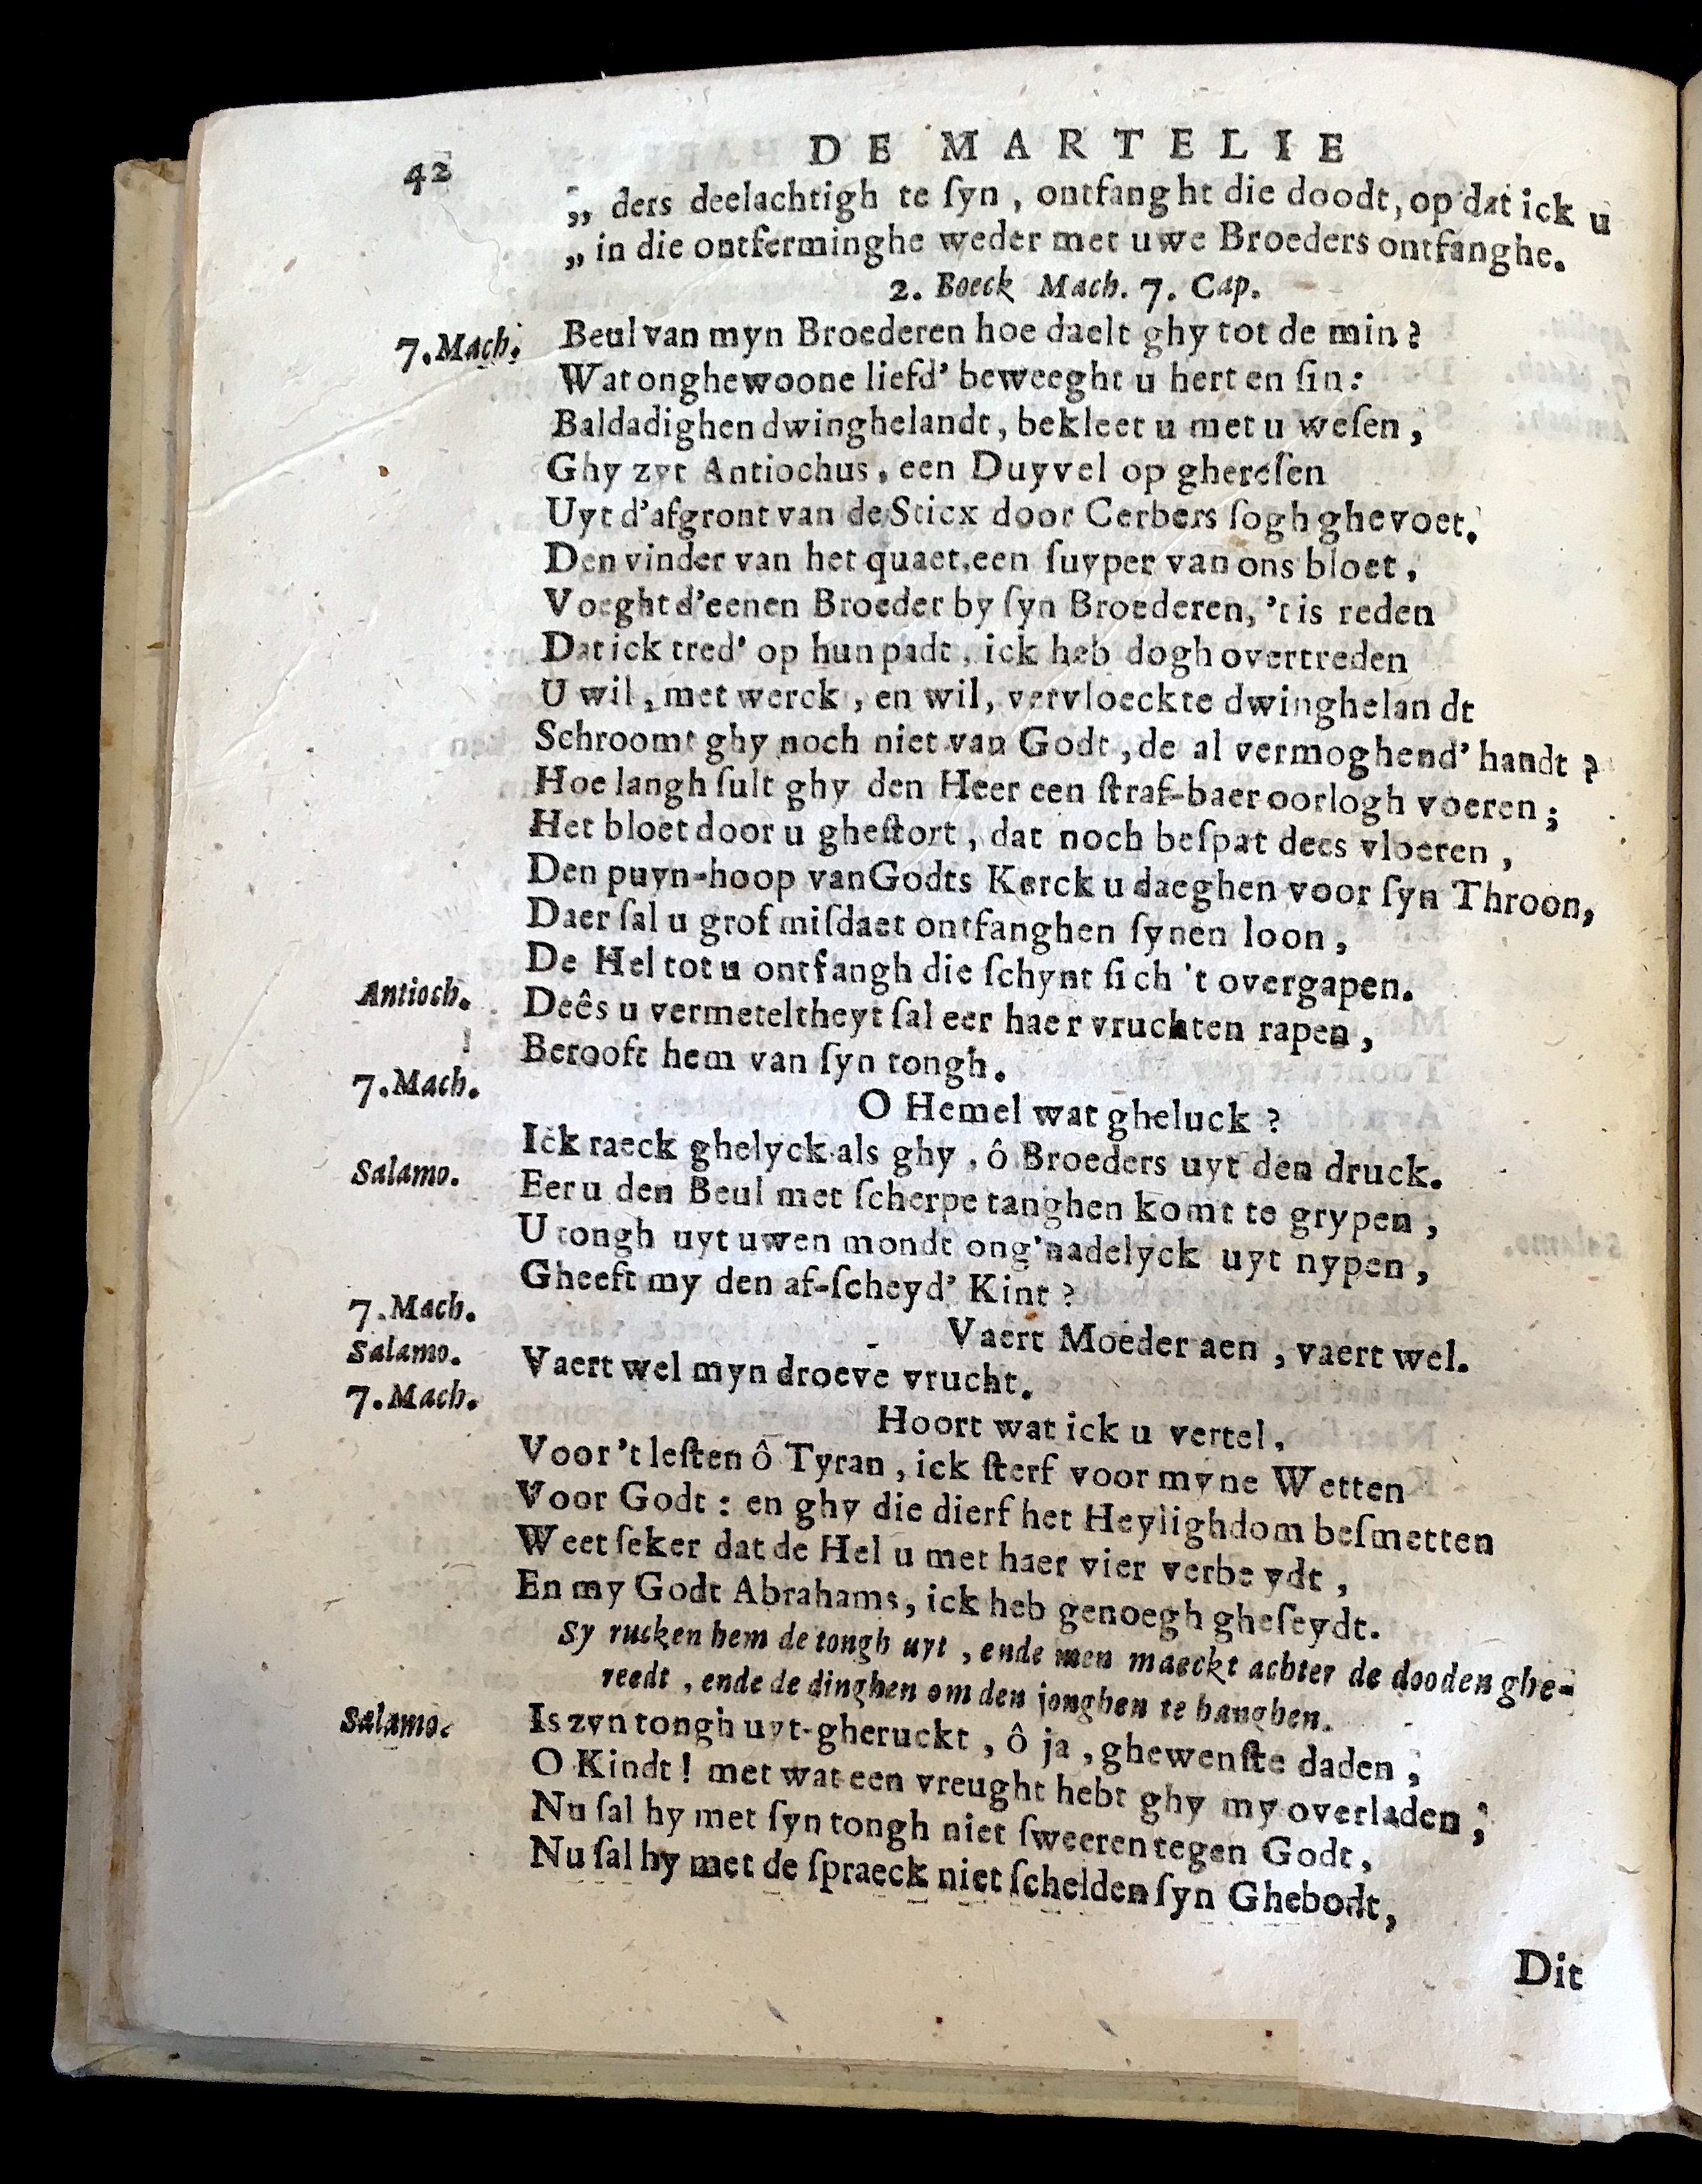 42 DE MARTELIE
„ ders deelachtigh te ſyn, ontfanght die doodt, op dat ick u
„ in die ontferminghe weder met uwe Broeders ontfanghe.
2. Boeck Mach. 7. Cap.
7.Mach. Beul van myn Broederen hoe daelt ghy tot de min?
Wat onghewoone liefd' beweeght u hert en ſin:
Baldadighen dwinghelandt, bekleet u met u weſen,
Ghy zyt Antiochus, een Duyvel op ghereſen
Uyt d'afgront van de Sticx door Cerbers ſogh ghevoet.
Den vinder van het quaet, een ſuyper van ons bloet,
Voeght d'eenen Broeder by ſyn Broederen, 't is reden
Dat ick tred' op hun padt, ick heb dogh overtreden
U wil, met werck, en wil, vervloeckte dwinghelandt
Schroomt ghy noch niet van Godt, de al vermoghend' handt?
Hoe langh ſult ghy den Heer een ſtraf-baer oorlogh voeren;
Het bloet door u gheſtort, dat noch beſpat dees vloeren,
Den puyn-hoop van Godts Kerck u daeghen voor ſyn Throon,
Daer ſal u grof miſdaet ontfanghen ſynen loon,
De Hel tot u ontfangh die ſchynt ſich 't overgapen.
Antioch. Deês u vermeteltheyt ſal eer haer vruchten rapen,
! Berooft hem van ſyn tongh.
7.Mach. O Hemel wat gheluck?
Ick raeck ghelyck als ghy, ô Broeders uyt den druck.
Salamo. Eer u den Beul met ſcherpe tanghen komt te grypen,
U tongh uyt uwen mondt ong'nadelyck uyt nypen,
Gheeft my den af-ſcheyd' Kint?
7.Mach. Vaert Moeder aen, vaert wel.
Salamo. Vaert wel myn droeve vrucht.
7.Mach. Hoort wat ick u vertel,
Voor 't leſten ô Tyran, ick ſterf voor myne Wetten
Voor Godt: en ghy die dierf het Heylighdom beſmetten
Weet ſeker dat de Hel u met haer vier verbeydt,
En my Godt Abrahams, ick heb genoegh gheſeydt.
Sy rucken hem de tongh uyt, ende men maeckt achter de dooden ghe-
reedt, ende de dinghen om den jonghen te hanghen.
Salamo. Is zyn tongh uyt-gheruckt, ô ja, ghewenſte daden,
O Kindt! met wat een vreught hebt ghy my overladen;
Nu ſal hy met ſyn tongh niet ſweeren tegen Godt,
Nu ſal hy met de ſpraeck niet ſchelden ſyn Ghebodt,
Dit